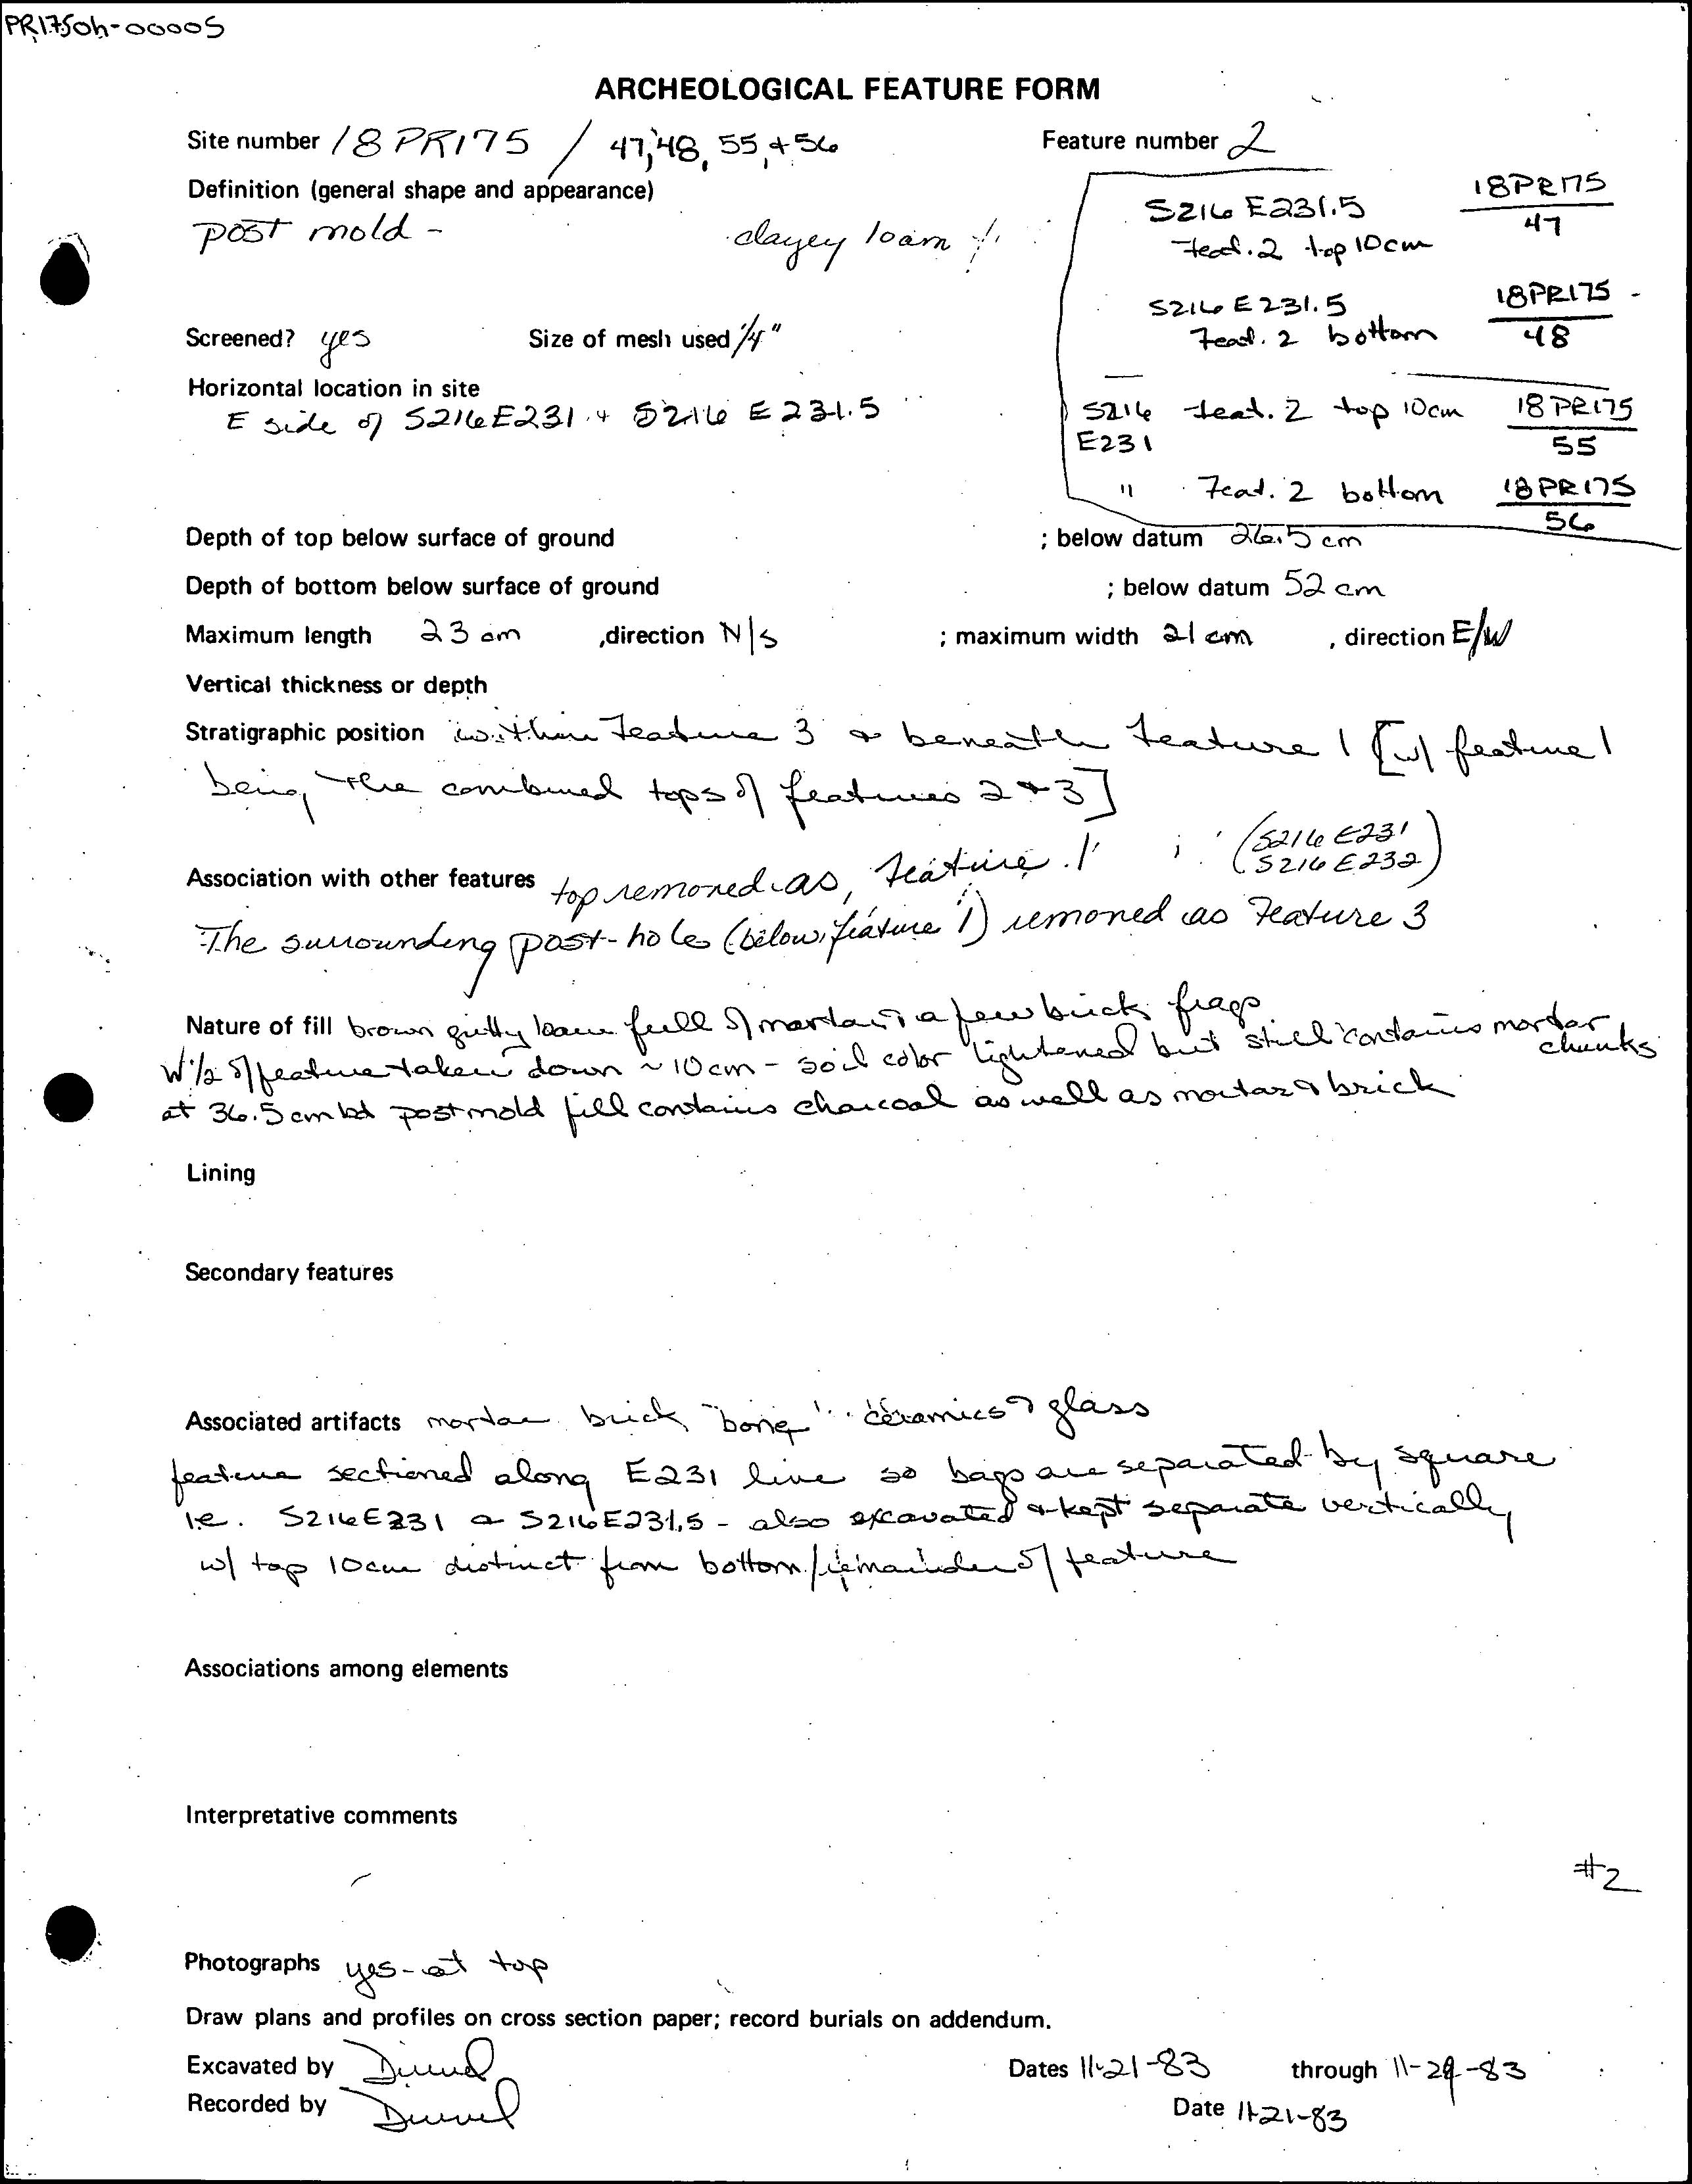 PR175Oh-00005
ARCHEOLOGICAL FEATURE FORM
Site number 18PR175 / 47, 48, 55, + 56 Feature number 2
Definition (general shape and appearance)
post mold - clayey loam
S216 E231.5 18PR175
Feat. 2 top 10cm 47
S216 E231.5 18PR175
Feat. 2 bottom 48
S216 feat. 2 top 10cm 18PR175
E231 55
" Feat. 2 bottom 18PR175
56
Screened? yes Size of mesh used 1/4"
Horizontal location in site
E side of S216E231 + S216 E231.5
Depth of top below surface of ground ; below datum 26.5 cm
Depth of bottom below surface of ground ; below datum 52 cm
Maximum length 23 cm ,direction N/S ; maximum width 21 cm , direction E/W
Vertical thickness or depth
Stratigraphic position within Feature 3 & beneath feature 1 [w/ feature 1
being the combined tops of features 2 & 3]
Association with other features top removed as, feature 1 (S216 E231
S216 E232)
The surrounding post-hole (below feature 1) removed as Feature 3
Nature of fill brown gritty loam full of mortar & a few brick frags
W 1/2 of feature taken down ~ 10cm - soil color lightened but still contains mortar
chunks
at 36.5 cm bd post mold fill contains charcoal as well as mortar & brick
Lining
Secondary features
Associated artifacts mortar brick bone ceramics & glass
feature sectioned along E231 line so bags are separated by square
i.e. S216E231 & S216E231.5 - also excavated & kept separate vertically
w/ top 10cm distinct from bottom/remainder of feature
Associations among elements
Interpretative comments
#2
Photographs yes - at top
Draw plans and profiles on cross section paper; record burials on addendum.
Excavated by Dates 11-21-83 through 11-29-83
Recorded by Date 11-21-83